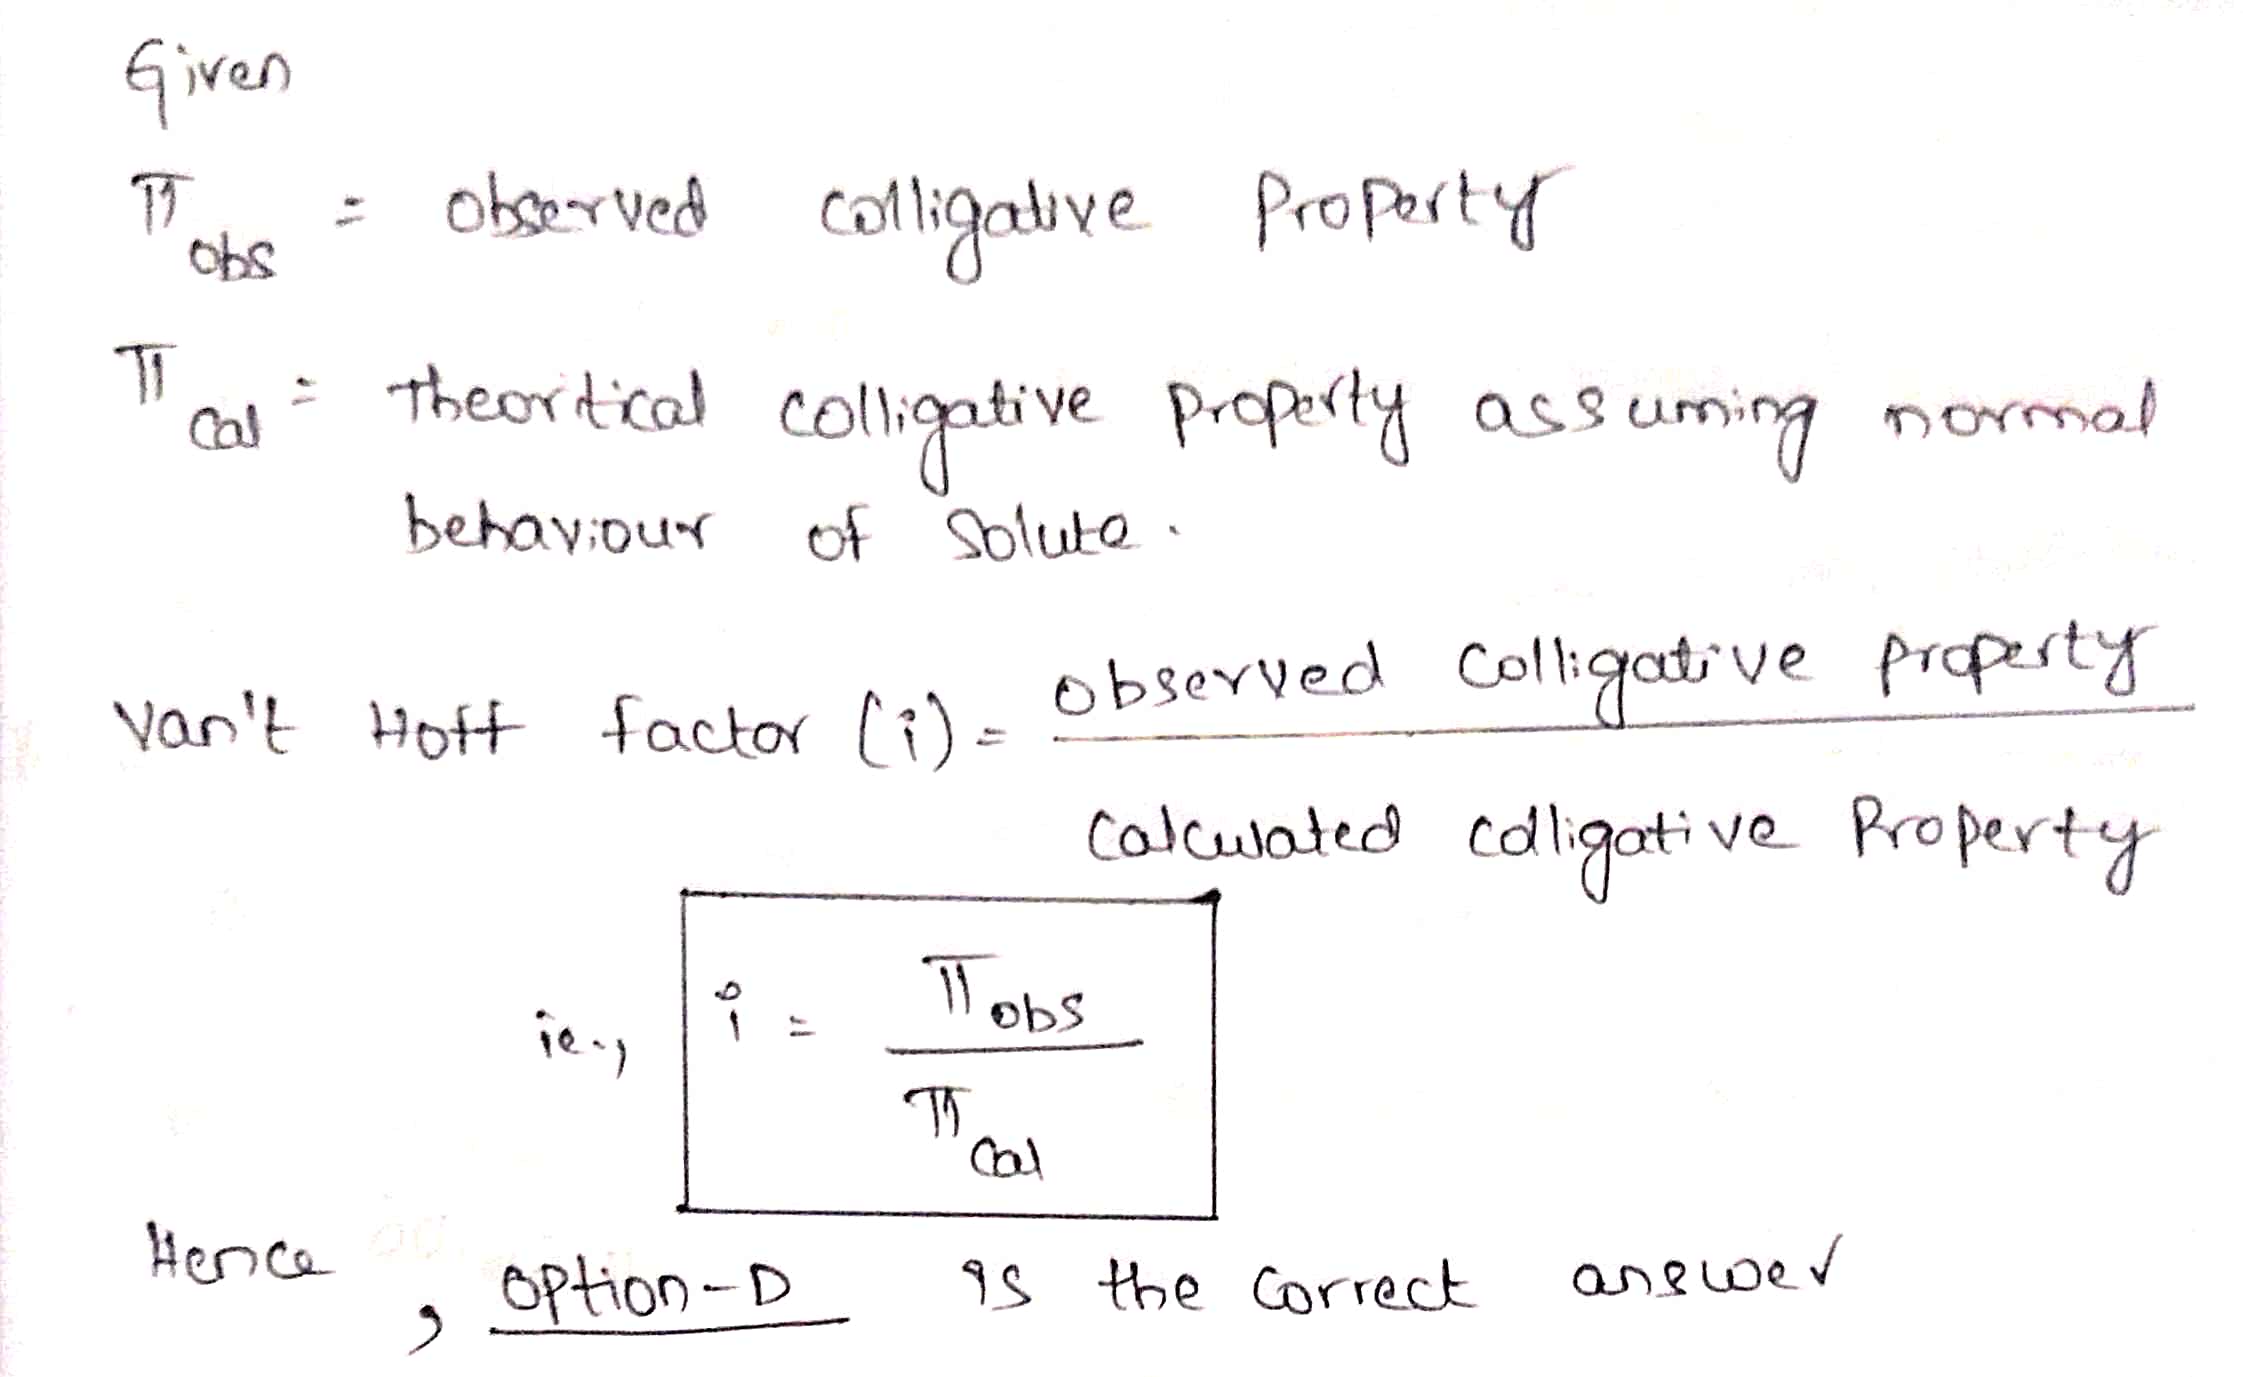 Given
π obs = observed colligative Property
π cal = theoritical colligative property assuming normal
behaviour of Solute.
Van't Hoff factor (i) = observed colligative property
Calculated colligative Property
ie., i = π obs
π cal
Hence, option-D is the correct answer